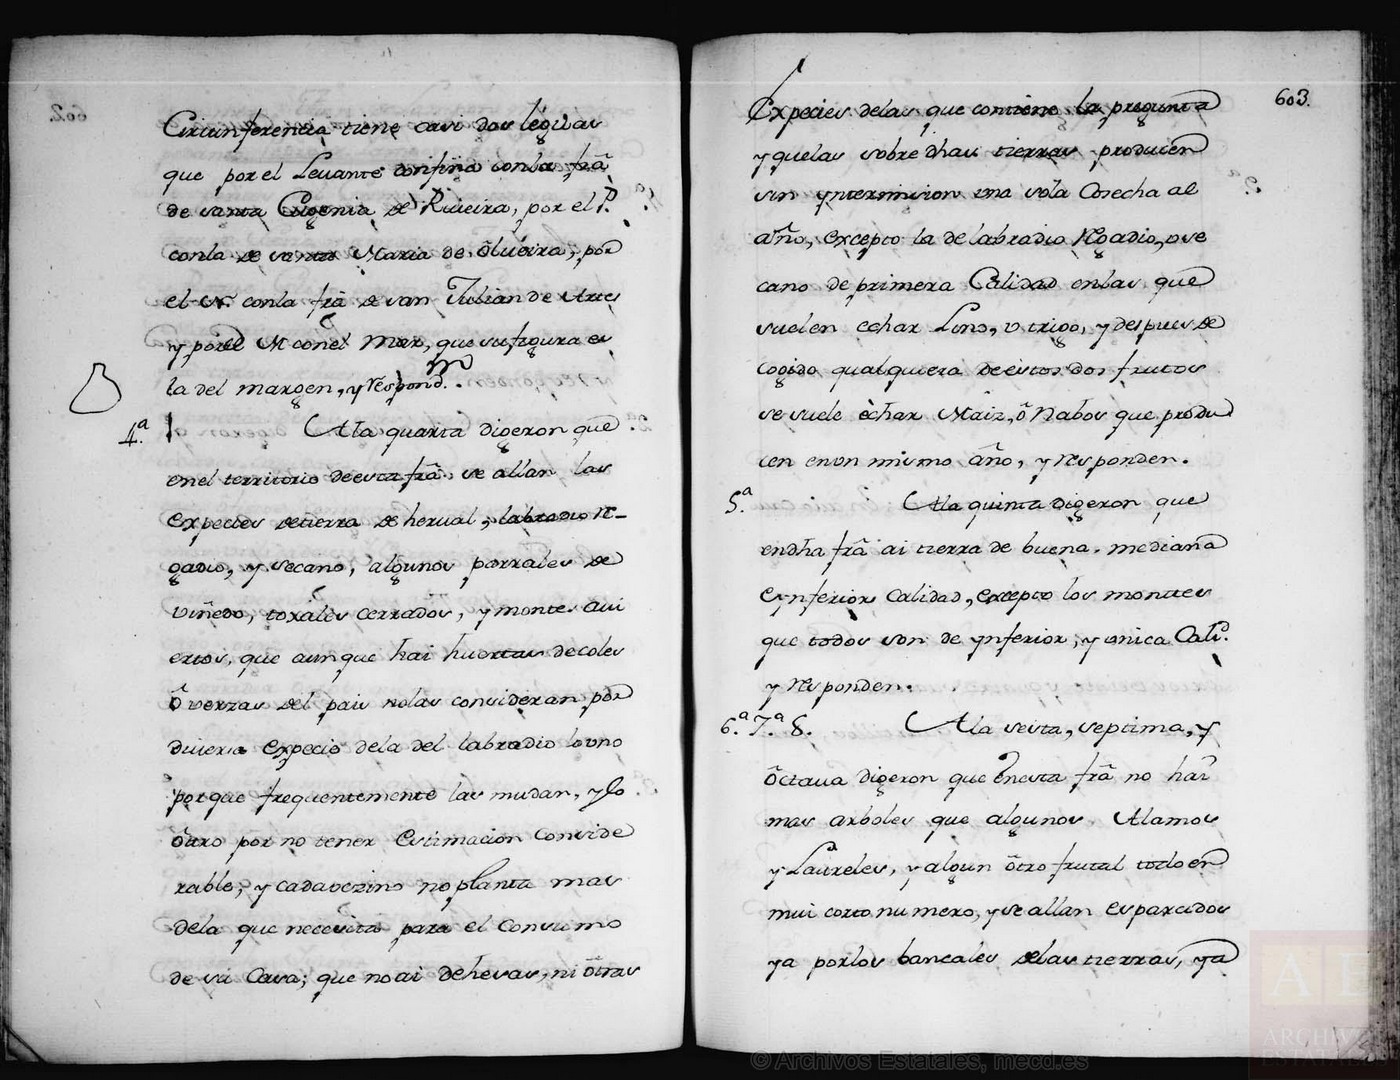 Circunferencia tiene casi dos léguas
que por el Leuante confina conla frã
de santa Eugenia de Riueira, por el P.
conla de santa Maria de ôlueira, por
el N. conla frã de san Julian de Artes
y por el M conel mar, que su figura es
la del margen, y respond.n
4.ª Ala quarta digeron que
enel territorio de esta frã. se allan las
expecies detierra de herual, labradio Re-
gadio, y secano, algunos parrales de
viñedo, toxales cerrados, y montes avi
ertos, que aunque hai huertas decoles
ô verzas del pais nolas consideran por
diuersa expecie dela del labradio lo uno
porque frequentemente las mudan, y lo
ôtro por no tener estimacion conside
rable, y cadavezino no planta mas
dela que necesita para el Consumo
de su Casa; que no ai dehesas, ni ôtras
603.
Expecies delas que contiene la pregunta
y quelas sobre dhas tierras producen
sin yntermision una sola Cosecha al
año, excepto la de labradio Regadio, o se
cano de primera Calidad enlas que
suelen echar Lino, o trigo, y despues de
cogido qualquiera de estos dos frutos
se suele êchar Maiz, ô Nabos que produ
cen enun mismo año, y responden.
5.ª Ala quinta digeron que
endha frã ai tierra de buena. mediana
e ynferior Calidad, excepto los montes
que todos son de ynferior, y unica Calid.
y responden.
6.ª 7.ª 8. Ala sesta, septima, y
ôctaua digeron que enesta frã no hai
mas arboles que algunos Alamos
y Laureles, y algun ôtro frutal todo en
mui corto numero, y se allan esparcidos
ya porlos bancales delas tierras, ya
© Archivos Estatales, mecd.es
AE
ARCHIVOS
ESTATALES